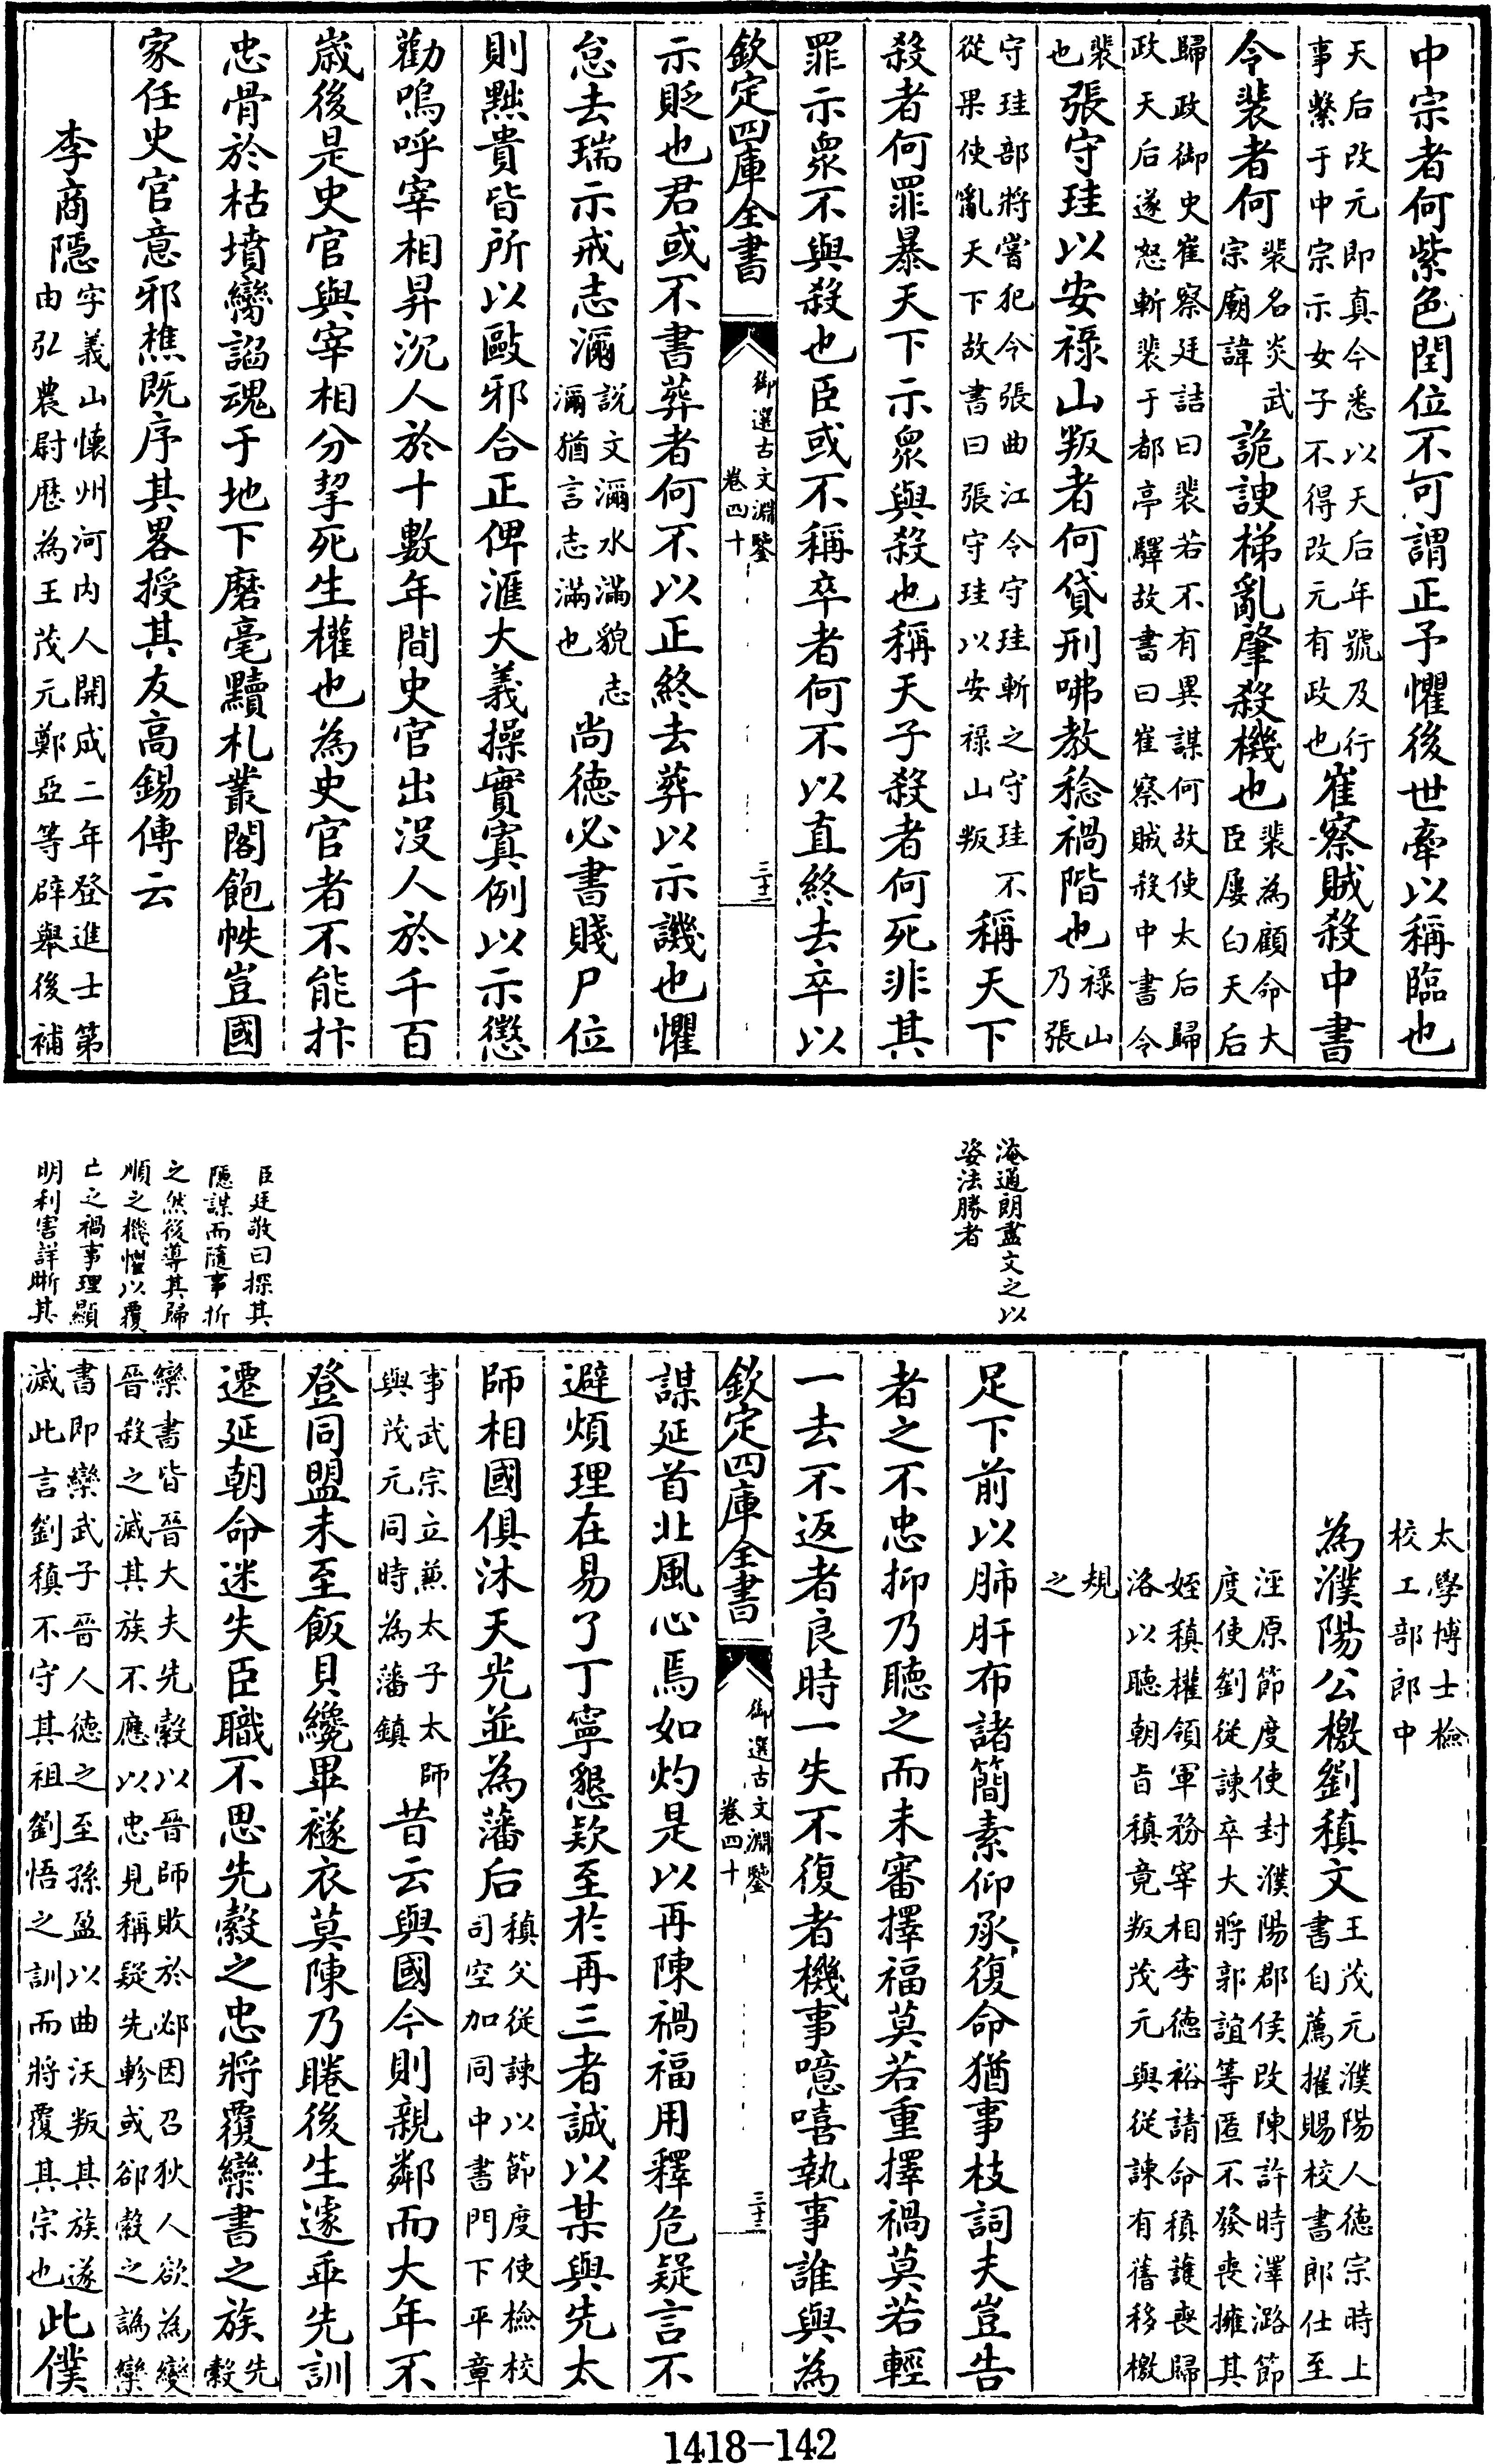 中宗者何紫色閏位不可謂正予懼後世牽以稱臨也
天后改元即真今悉以天后年號及行
事繫于中宗示女子不得改元有政也
崔察賊殺中書
令裴者何
裴名炎武
宗廟諱
詭諛梯亂肇殺機也
裴為顧命大
臣屢白天后
歸政御史崔察廷詰曰裴若不有異謀何故使太后歸
政天后遂怒斬裴于都亭驛故書曰崔察賊殺中書令
裴
也
張守珪以安祿山叛者何貸刑咈教稔禍階也
祿山
乃張
守珪部將嘗犯令張曲江令守珪斬之守珪不
從果使亂天下故書曰張守珪以安祿山叛
稱天下
殺者何罪暴天下示衆與殺也稱天子殺者何死非其
罪示衆不與殺也臣或不稱卒者何不以直終去卒以
欽定四庫全書
御選古文淵鑒
卷四十
三十二
示貶也君或不書葬者何不以正終去葬以示譏也懼
怠去瑞示戒志濔
說文濔水滿貌志
濔猶言志滿也
尚德必書賤尸位
則黜貴皆所以毆邪合正俾滙大義操實寘例以示懲
勸嗚呼宰相昇沉人於十數年間史官出沒人於千百
歲後是史官與宰相分挈死生權也為史官者不能抃
忠骨於枯墳臠諂魂于地下磨毫黷札叢閣飽帙豈國
家任史官意邪樵既序其畧授其友高錫傳云
李商隱
字義山懷州河内人開成二年登進士第
由弘農尉歷為王茂元鄭亞等辟舉後補
淹通朗盡文之以
姿法勝者
臣廷敬曰探其
隱謀而隨事折
之然後導其歸
順之機懼以覆
亡之禍事理顯
明利害詳晰其
太學博士檢
校工部郎中
為濮陽公檄劉稹文
王茂元濮陽人德宗時上
書自薦擢賜校書郎仕至
涇原節度使封濮陽郡侯改陳許時澤潞節
度使劉從諫卒大將郭誼等匿不發喪擁其
姪稹權領軍務宰相李德裕請命稹護喪歸
洛以聽朝旨稹竟叛茂元與從諫有舊移檄
規
之
足下前以肺肝布諸簡素仰承復命猶事枝詞夫豈告
者之不忠抑乃聽之而未審擇福莫若重擇禍莫若輕
一去不返者良時一失不復者機事噫嘻執事誰與為
欽定四庫全書
御選古文淵鑒
卷四十
三十三
謀延首北風心焉如灼是以再陳禍福用釋危疑言不
避煩理在易了丁寧懇欵至於再三者誠以某與先太
師相國俱沐天光並為藩后
稹父從諫以節度使檢校
司空加同中書門下平章
事武宗立兼太子太師
與茂元同時為藩鎮
昔云與國今則親鄰而大年不
登同盟未至飯貝纔畢襚衣莫陳乃睠後生遽乖先訓
遷延朝命迷失臣職不思先縠之忠將覆欒書之族
先
縠
欒書皆晉大夫先縠以晉師敗於邲因召狄人欲為變
晉殺之滅其族不應以忠見稱疑先軫或郤縠之譌欒
書即欒武子晉人德之至孫盈以曲沃叛其族遂
滅此言劉稹不守其祖劉悟之訓而將覆其宗也
此僕
1418-142